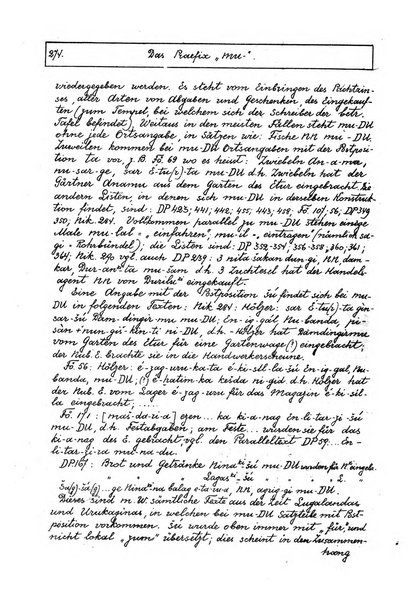 274.
Das Praefix „mu-"
wiedergegeben werden. Es steht vom Einbringen des Pachtzin-
ses, aller Arten von Abgaben und Geschenken, des Eingekauf-
ten (zum Tempel, bei welchem sich der Schreiber der betr.
Tafel befindet). Weitaus in den meisten Fällen steht mu-DU
ohne jede Ortsangabe, in Sätzen wie: Fische NN mu-DU.
Zuweilen kommen bei mu-DU Ortsangaben mit der Postposi-
tion ta vor, z.B. Fö. 69 wo es heisst: Zwiebeln An-a-mu
nu-sar-ge, sar E-tu(r)-ta mu-DU d.h. Zwiebeln hat der
Gärtner Anamu aus dem Garten des Etur eingebracht. In
anderen Listen, in denen sich mu-DU in derselben Konstruk-
tion findet, sind: DP 423; 441; 442, 455; 443; 458; Fö. 107; 56; DP 349
350; Nik. 284. Vollkommen parallel zu mu-DU stehen einige
Male mu-lal- „einfahren", mu-il- „eintragen" (nämlich sa-
gi- Rohrbündel); die Listen sind: DP 352-354; 356-358; 360; 361;
364; Nik. 290 vgl. auch DP 239: 3 nita šakan dun-gi, NN, dam-
kar Dur-an ta mu-šam d.h. 3 Zuchtesel hat der Handels-
agent NN von Durilu eingekauft.
Eine Angabe mit der Postposition šú findet sich bei mu-
DU in folgenden Texten: Nik. 281: Hölzer: sar E-tu(r)-ta gin-
sar-šú Dam-dingir-mu mu-DU; En-ig-gal Nu-banda,
sàn+nun-guš-ken-ti ni-DU, d.h. -Hölzer hat Damdingirmu
vom Garten des Etur für eine Gartenwage(?) eingebracht;
der Nub. E. brachte sie in die Handwerkerscheune.
Fö. 56: Hölzer: é-jag-uru-ka-ta é-ki-sil-la-šú En-ig-gal, Nu-
banda, mu-DU; (!) é-ḫatim-ka kešda ni-gid d.h. Hölzer hat
der Nub. E. vom Lager é-jag-uru für das Magazin é-ki-sil-
la eingebracht; ....
Fö. 171: [maš-da-ri-a] eren... ka ki-a-nag En-li-tar-zi-šú
mu-DU, d.h. Festabgaben; am Feste... wurden sie für das
ki-a-nag des E. gebracht; vgl. den Paralleltext DP 59... En-
li-tar-zi-ra mu-na-du.
DP 167: Brot und Getränke Nina ki-šú mu-DU wurden für N. eingeln.
" " " Lagas ki-šú " " " L. "
Dieses sind m.W. sämtliche Texte aus der Zeit Lugalandas
und Urukaginas, in welchen bei mu-DU Satzteile mit Post-
position vorkommen. šú wurde oben immer mit „für" und
nicht lokal „zum" übersetzt; dies scheint in den Zusammen-
hang